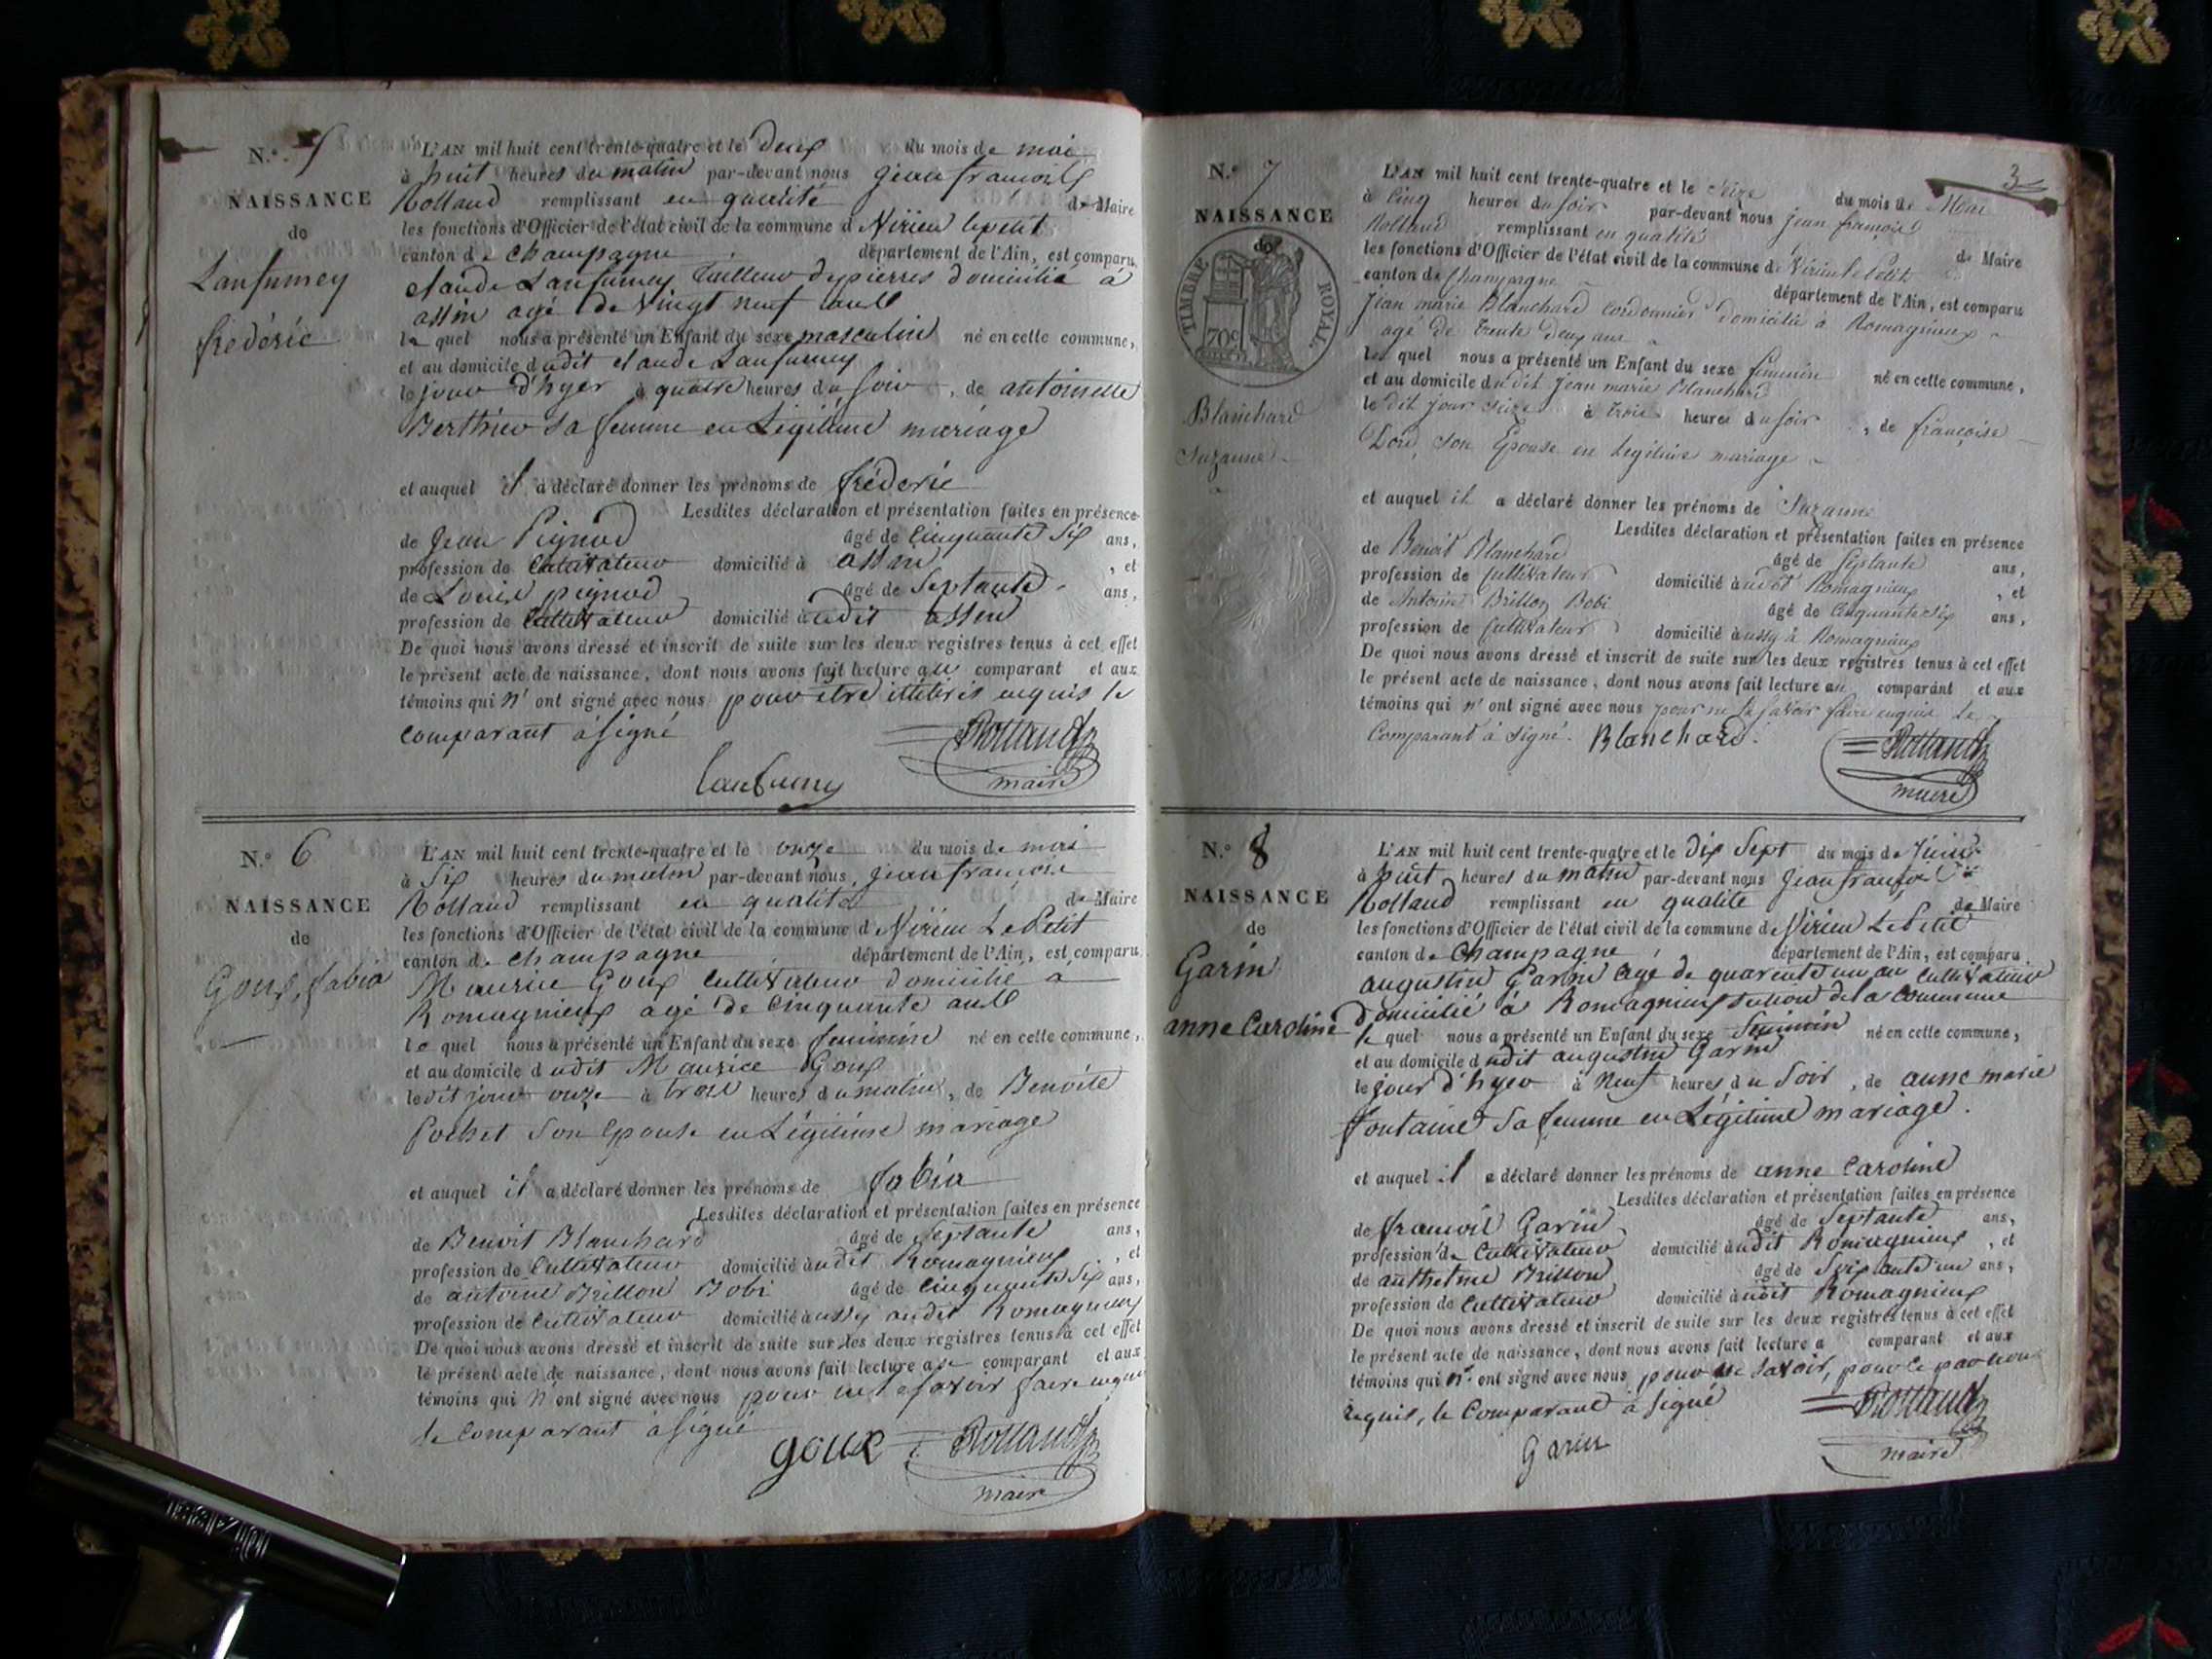 N.o 5
NAISSANCE
de
Lanfumey
frédéric
L'AN mil huit cent trente-quatre et le deux du mois de mai
à huit heures du matin par-devant nous jean francois
Rolland remplissant en qualité de Maire
les fonctions d'Officier de l'état civil de la commune d Virieu lepetit
canton de Champagne département de l'Ain, est comparu
claude Lanfumey Tailleur depierres domicilié à
assin agé de vingt neuf ans
le quel nous a présenté un Enfant du sexe masculin né en cette commune,
et au domicile dudit claude Lanfumey
le jour d'hyer à quatre heures du soir, de antoinette
Berthier sa femme en Légitime mariage
et auquel il a déclaré donner les prénoms de frédéric
Lesdites déclaration et présentation faites en présence
de Jean Pignod âgé de Cinquante Six ans,
profession de Cultivateur domicilié à assin, et
de Louis pignod âgé de Septante ans,
profession de Cultivateur domicilié audit assin
De quoi nous avons dressé et inscrit de suite sur les deux registres tenus à cet effet
le présent acte de naissance, dont nous avons fait lecture au comparant et aux
témoins qui n'ont signé avec nous pour etre illitérés enquis le
comparant à signé
Rolland
maire
Lanfumey
N.o 6
NAISSANCE
de
Goux, fabia
L'AN mil huit cent trente-quatre et le onze du mois de mai
à Six heures du matin par-devant nous jean françois
Rolland remplissant en qualité de Maire
les fonctions d'Officier de l'état civil de la commune d Virieu Le Petit
canton de Champagne département de l'Ain, est comparu
Maurice Goux Cultivateur domicilié à
Romagnieux agé de Cinquante ans
le quel nous a présenté un Enfant du sexe feminine né en cette commune,
et au domicile dudit Maurice Goux
ledit jour onze à trois heures du matin, de Benoite
Pochet Son Epouse en Légitime mariage
et auquel il a déclaré donner les prénoms de fabia
Lesdites déclaration et présentation faites en présence
de Benoit Blanchard âgé de Septante ans,
profession de Cultivateur domicilié audit Romagnieux, et
de antoine Brillon Bobi âgé de Cinquante Six ans,
profession de Cultivateur domicilié aussy audit Romagnieux
De quoi nous avons dressé et inscrit de suite sur les deux registres tenus à cet effet
le présent acte de naissance, dont nous avons fait lecture a comparant et aux
témoins qui n'ont signé avec nous pour ne savoir faire enquis
le Comparant à signé
goux
Rolland
maire
3
N.o 7
NAISSANCE
de
TIMBRE ROYAL
70c
Blanchard
Suzanne
L'AN mil huit cent trente-quatre et le seize du mois de Mai
à Cinq heures du soir par-devant nous jean françois
Rolland remplissant en qualité de Maire
les fonctions d'Officier de l'état civil de la commune de Virieu le Petit
canton de Champagne département de l'Ain, est comparu
Jean marie Blanchard cordonnier domicilié à Romagnieux
agé de trente deux ans
le quel nous a présenté un Enfant du sexe feminin né en cette commune,
et au domicile dudit Jean marie Blanchard
le dit jour seize à trois heures du soir, de françoise
Doré, son Epouse en legitime mariage
et auquel il a déclaré donner les prénoms de Suzanne
Lesdites déclaration et présentation faites en présence
de Benoit Blanchard âgé de Septante ans,
profession de Cultivateur domicilié audit Romagnieux, et
de Antoine Brillon Bobi âgé de Cinquante Six ans,
profession de Cultivateur domicilié aussy à Romagnieux
De quoi nous avons dressé et inscrit de suite sur les deux registres tenus à cet effet
le présent acte de naissance, dont nous avons fait lecture au comparant et aux
témoins qui n'ont signé avec nous pour ne le savoir faire enquis le
Comparant à signé. Blanchard.
Rolland
maire
N.o 8
NAISSANCE
de
Garin
anne Caroline
L'AN mil huit cent trente-quatre et le dix Sept du mois de Juin
à huit heures du matin par-devant nous Jean françois
Rolland remplissant en qualité de Maire
les fonctions d'Officier de l'état civil de la commune de Virieu Le Petit
canton de Champagne département de l'Ain, est comparu
augustin Garin agé de quarente un an Cultivateur
domicilié à Romagnieux section de la Commune
le quel nous a présenté un Enfant du sexe Feminin né en cette commune,
et au domicile dudit augustin Garin
le jour d'hyer à Neuf heures du Soir, de anne marie
fontaine Sa femme en Légitime mariage.
et auquel il a déclaré donner les prénoms de anne Caroline
Lesdites déclaration et présentation faites en présence
de francois Garin âgé de Septante ans,
profession de Cultivateur domicilié audit Romagnieux, et
de anthelme Brillon âgé de Soixante un ans,
profession de Cultivateur domicilié audit Romagnieux
De quoi nous avons dressé et inscrit de suite sur les deux registres tenus à cet effet
le présent acte de naissance, dont nous avons fait lecture a comparant et aux
témoins qui n'ont signé avec nous pour ne savoir, pour ce par nous
requis, le Comparant à signé
Rolland
maire
Garin